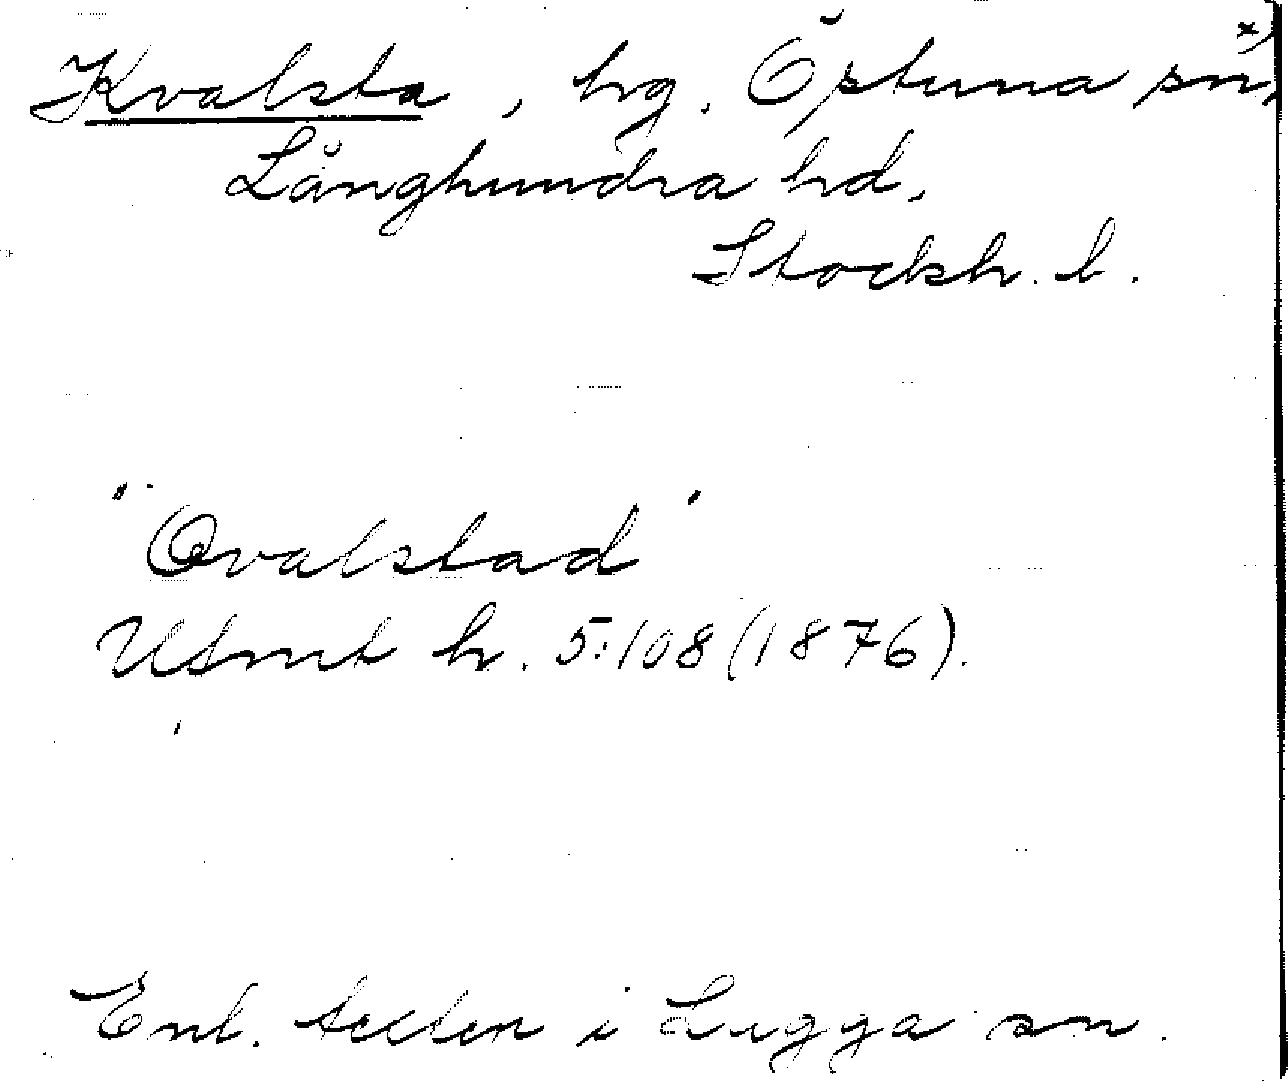 Kvalsta, hg. Östuna sn, x)
Långhundra hd,
Stockh. l.
"Qvalstad"
Utmt h. 5:108 (1876).
Enl. texten i Lagga sn.